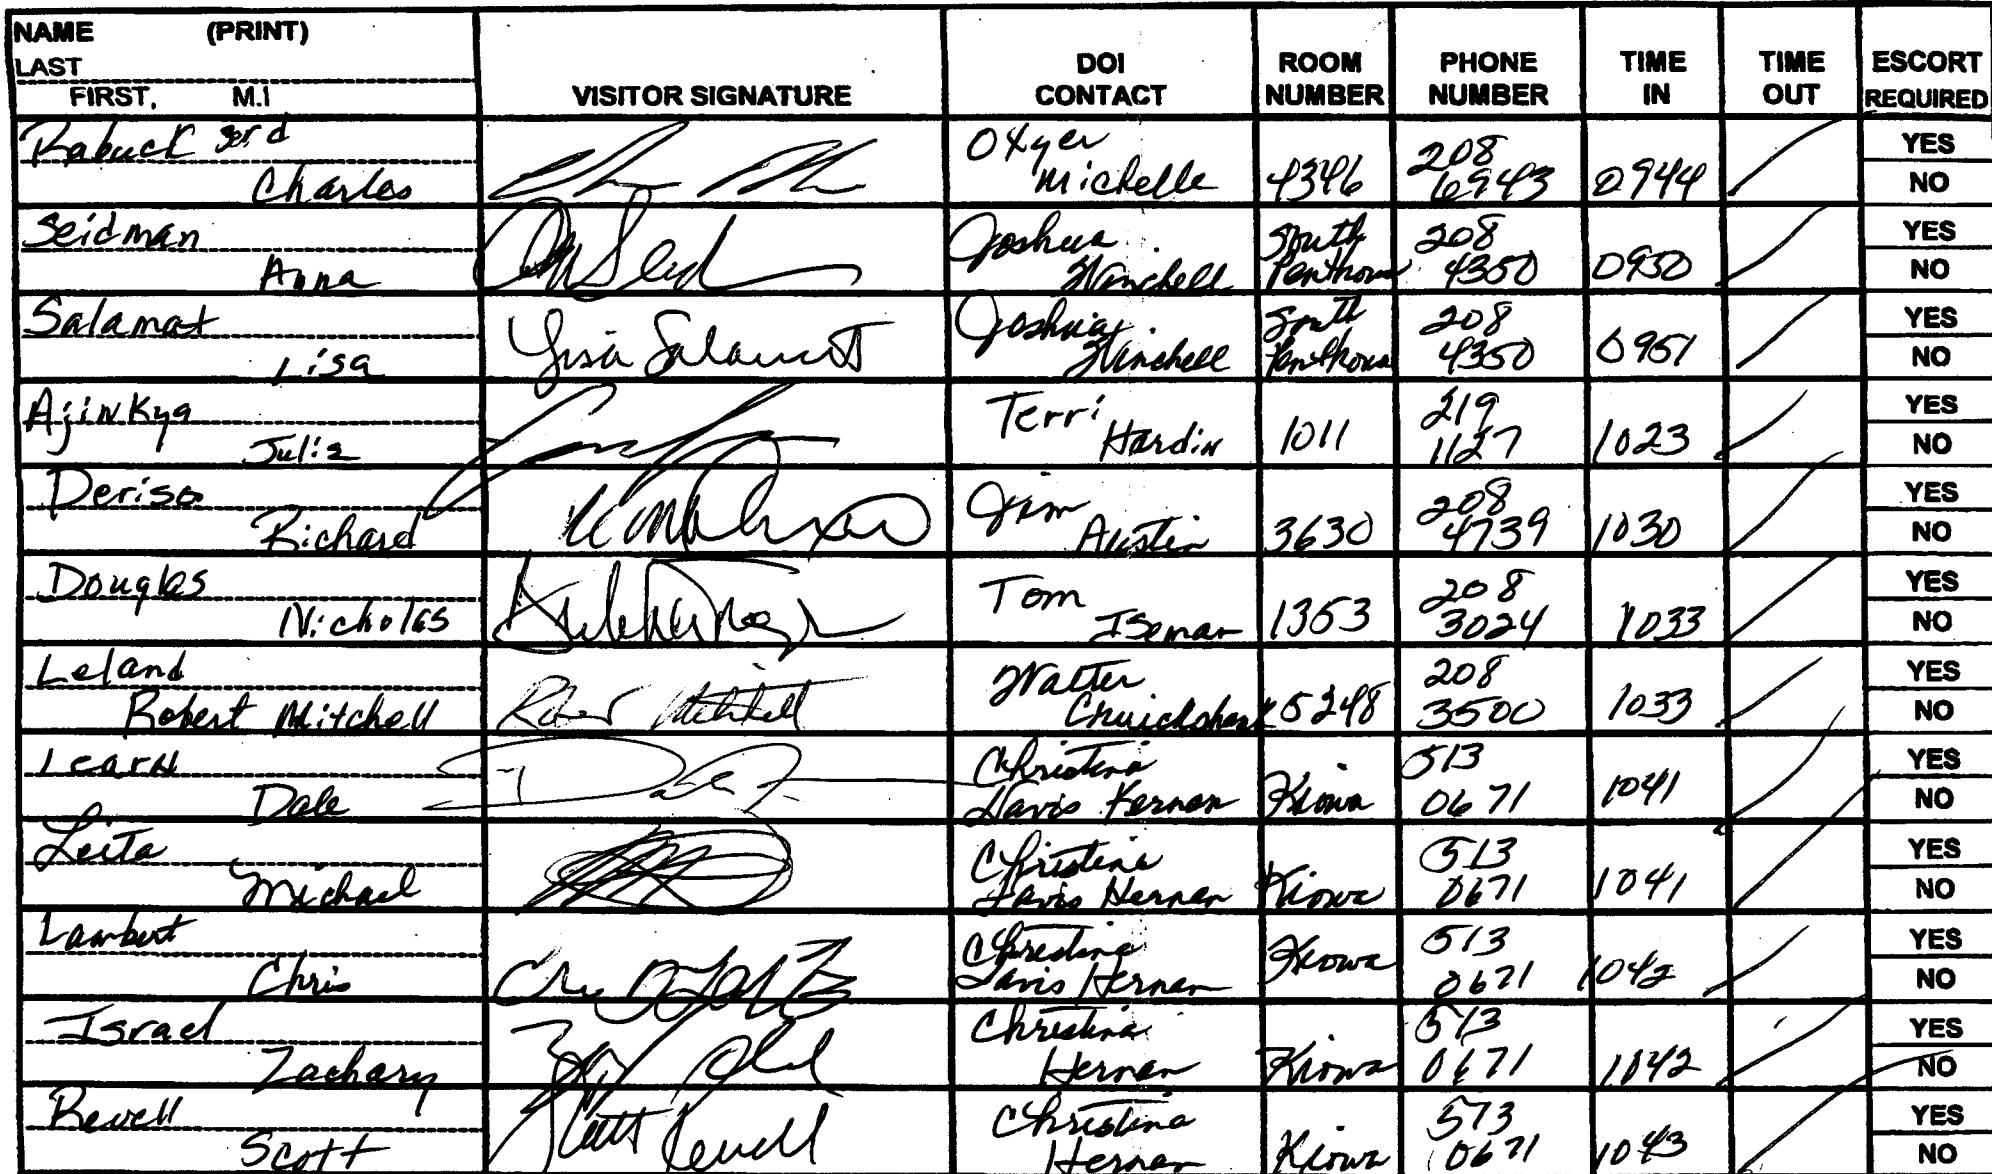 NAME (PRINT)
LAST
FIRST, M.I
VISITOR SIGNATURE
DOI
CONTACT
ROOM
NUMBER
PHONE
NUMBER
TIME
IN
TIME
OUT
ESCORT
REQUIRED
Rabuck
Charles
Oxyer
Michelle
4346
208
6943
0944
YES
NO
Seidman
Anna
Joshua
Winchell
South
Penthouse
208
4350
0950
YES
NO
Salamat
Lisa
Lisa Salamat
Joshua
Winchell
South
Penthouse
208
4350
0951
YES
NO
Ajinkya
Julia
Terri
Hardin
1011
219
1127
1023
YES
NO
Deriso
Richard
Jim
Austin
3630
208
4739
1030
YES
NO
Douglas
Nicholas
Tom
Iseman
1353
208
3024
1033
YES
NO
Leland
Robert Mitchell
Robert Mitchell
Walter
Cruickshank
5248
208
3500
1033
YES
NO
Learn
Dale
Christina
Davis Kernan
Kiowa
513
0671
1041
YES
NO
Leita
Michael
Christina
Davis Hernan
Kiowa
513
0671
1041
YES
NO
Lambert
Chris
Christina
Davis Hernan
Kiowa
513
0671
1042
YES
NO
Israel
Zachary
Christina
Hernan
Kiowa
513
0671
1042
YES
NO
Revell
Scott
Scott Revell
Christina
Hernan
Kiowa
513
0671
1043
YES
NO